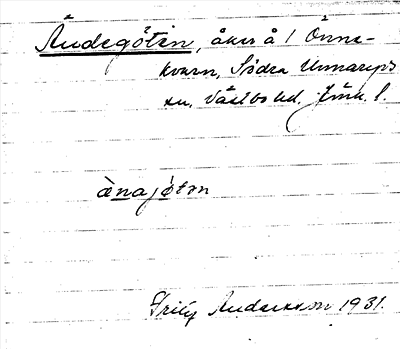 Ändegöten, åker å 1 Önne-
kvarn, Södra Unnaryps
sn. Västbo hd. Jönk. l.
ànajǿtən
Fritz Andersson 1931.